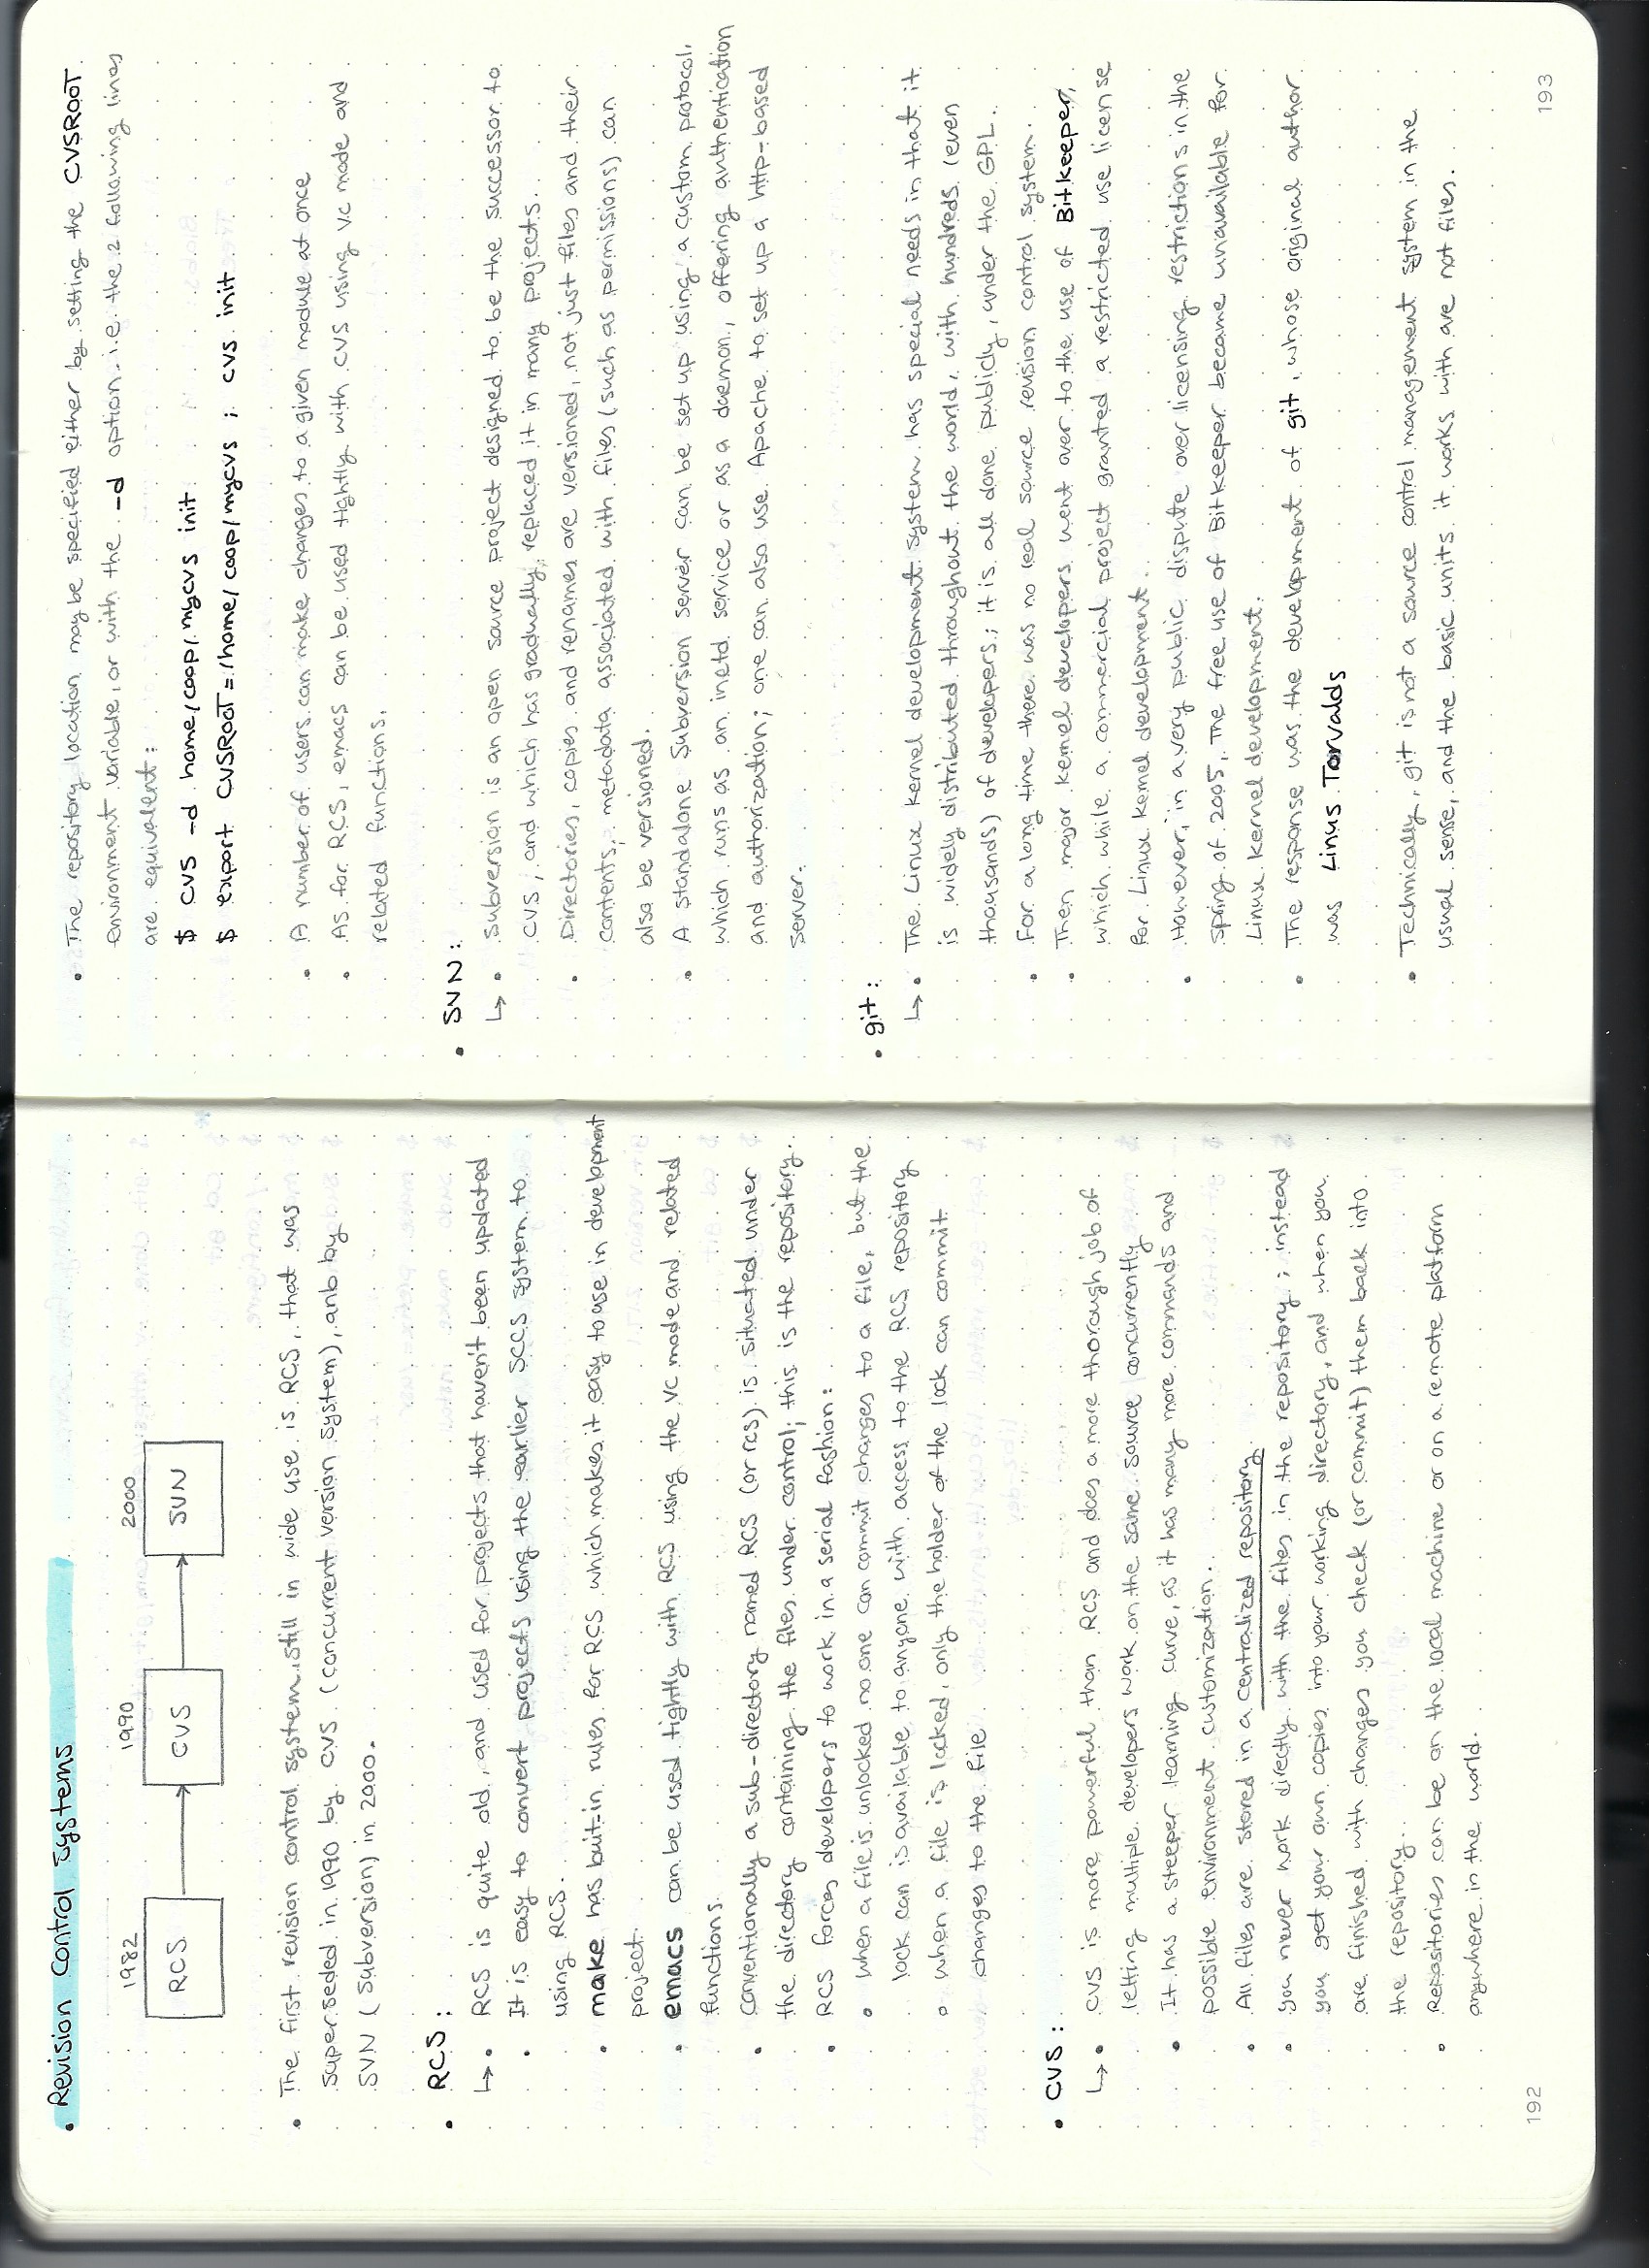 • Revision Control Systems
1982 1990 2000
RCS CVS SVN
• The first revision control system still in wide use is RCS, that was
superseded in 1990 by CVS (concurrent version system), anb by
SVN (Subversion) in 2000.
• RCS:
↳ • RCS is quite old, and used for projects that haven't been updated
• It is easy to convert projects using the earlier SCCS system to
using RCS.
• make has buit-in rules for RCS which makes it easy to use in development
project.
• emacs can be used tightly with RCS using the VC mode and related
functions.
• conventionally a sub-directory named RCS (or rcs) is situated under
the directory containing the files under control; this is the repository.
• RCS forces developers to work in a serial fashion:
∘ When a file is unlocked no one can commit changes to a file, but the
lock can is available to anyone with access to the RCS repository
∘ when a file is locked, only the holder of the lock can commit
changes to the file
• CVS:
↳ • CVS is more powerful than RCS and does a more thorough job of
letting multiple developers work on the same source concurrently
• It has a steeper learning curve, as it has many more commands and
possible environment customization.
• All files are stored in a centralized repository
• you never work directly with the files in the repository; instead
you get your own copies into your working directory, and when you
are finished with changes you check (or commit) them back into
the repository.
• Repositories can be on the local machine or on a remote platform
anywhere in the world.
192
• The repository location may be specified either by setting the CVSROOT
environment variable, or with the -d option i.e. the 2 following lines
are equivalent:
$ cvs -d home/coop/mycvs init
$ export CVSROOT=/home/coop/mycvs ; cvs init
• A number of users can make changes to a given module at once
• As for RCS, emacs can be used tightly with CVS using VC mode and
related functions.
• SVN:
↳ • Subversion is an open source project designed to be the successor to
CVS, and which has gradually replaced it in many projects.
• Directories, copies and renames are versioned, not just files and their
contents, metadata associated with files (such as permissions) can
also be versioned.
• A standalone Subversion server can be set up using a custom protocol,
which runs as an inetd service or as a daemon, offering authentication
and authorization; one can also use Apache to set up a http-based
server.
• git:
↳ • The Linux kernel development system has special needs in that it
is widely distributed throughout the world, with hundreds (even
thousands) of developers; it is all done publicly, under the GPL.
• For a long time there was no real source revision control system.
• Then major kernel developers went over to the use of Bitkeeper,
which while a commercial project granted a restricted use license
for Linux kernel development.
• However, in a very public dispute over licensing restrictions in the
spring of 2005, The free use of Bitkeeper became unavailable for
Linux kernel development.
• The response was the development of git, whose original author
was Linus Torvalds
• Technically, git is not a source control management system in the
usual sense, and the basic units it works with are not files.
193